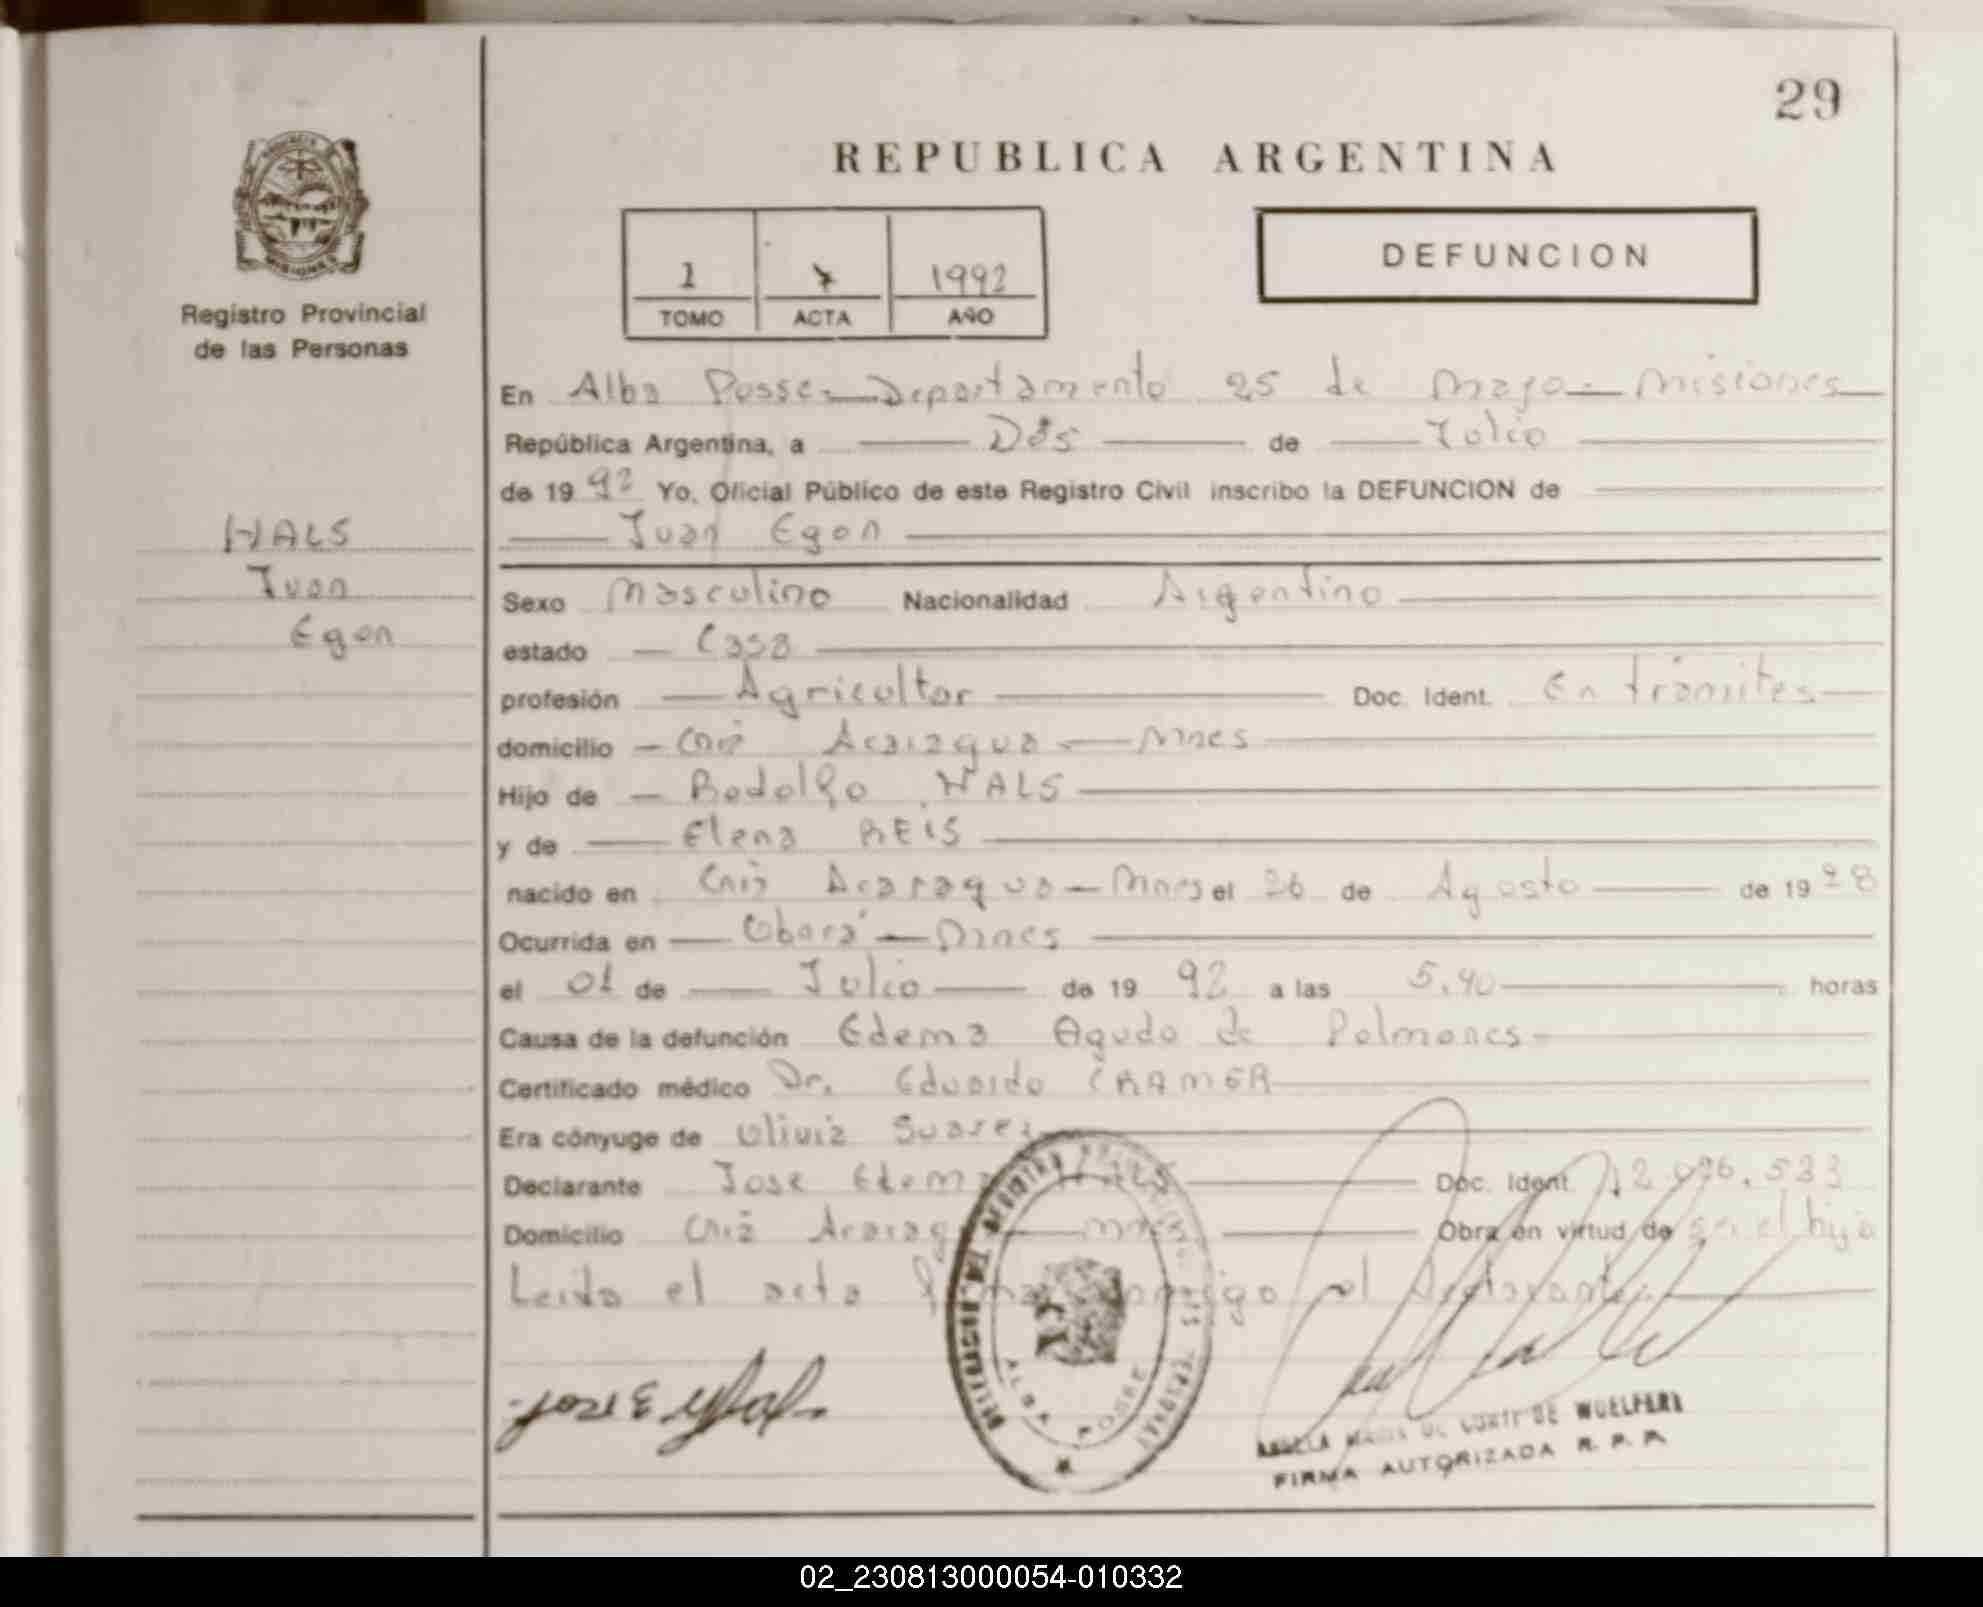 29
REPUBLICA ARGENTINA
1 7 1992
TOMO ACTA AÑO
DEFUNCION
Registro Provincial
de las Personas
HALS
Juan
Egon
En Alba Posse - Departamento 25 de Mayo - Misiones
República Argentina, a Dós de Julio
de 19 92 Yo, Oficial Público de este Registro Civil inscribo la DEFUNCION de
Juan Egon
Sexo Masculino Nacionalidad Argentino
estado Casa
profesión Agricultor Doc. Ident. En trámites
domicilio Acaragua - Mnes
Hijo de Rodolfo HALS
y de Elena REIS
nacido en Acaragua - Mnes el 26 de Agosto de 19 28
Ocurrida en Oberá - Mnes
el 01 de Julio de 19 92 a las 5,40 horas
Causa de la defunción Edema Agudo de Pulmones
Certificado médico Dr. Eduardo CRAMER
Era cónyuge de Olivia Suarez
Declarante Jose HALS Doc. Ident. 12.096.533
Domicilio Obra en virtud de ser el hijo
Leida el acta conmigo el declarante
Jose E
ALBA POSSE
DE WUELFERT
FIRMA AUTORIZADA R. P. P.
02_230813000054-010332